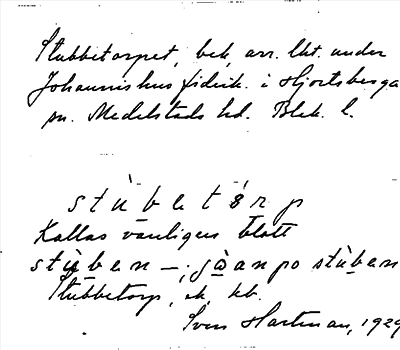 Stubbetorpet, beb, arr. lht. under
Johannishus fideik. i Hjortsberga
sn. Medelstads hd. Blek. l.
stùbetórp
Kallas vanligen blott
stùben –; gàanpo stùben
Stubbetorp, ek, kb.
Sven Hartman, 1929